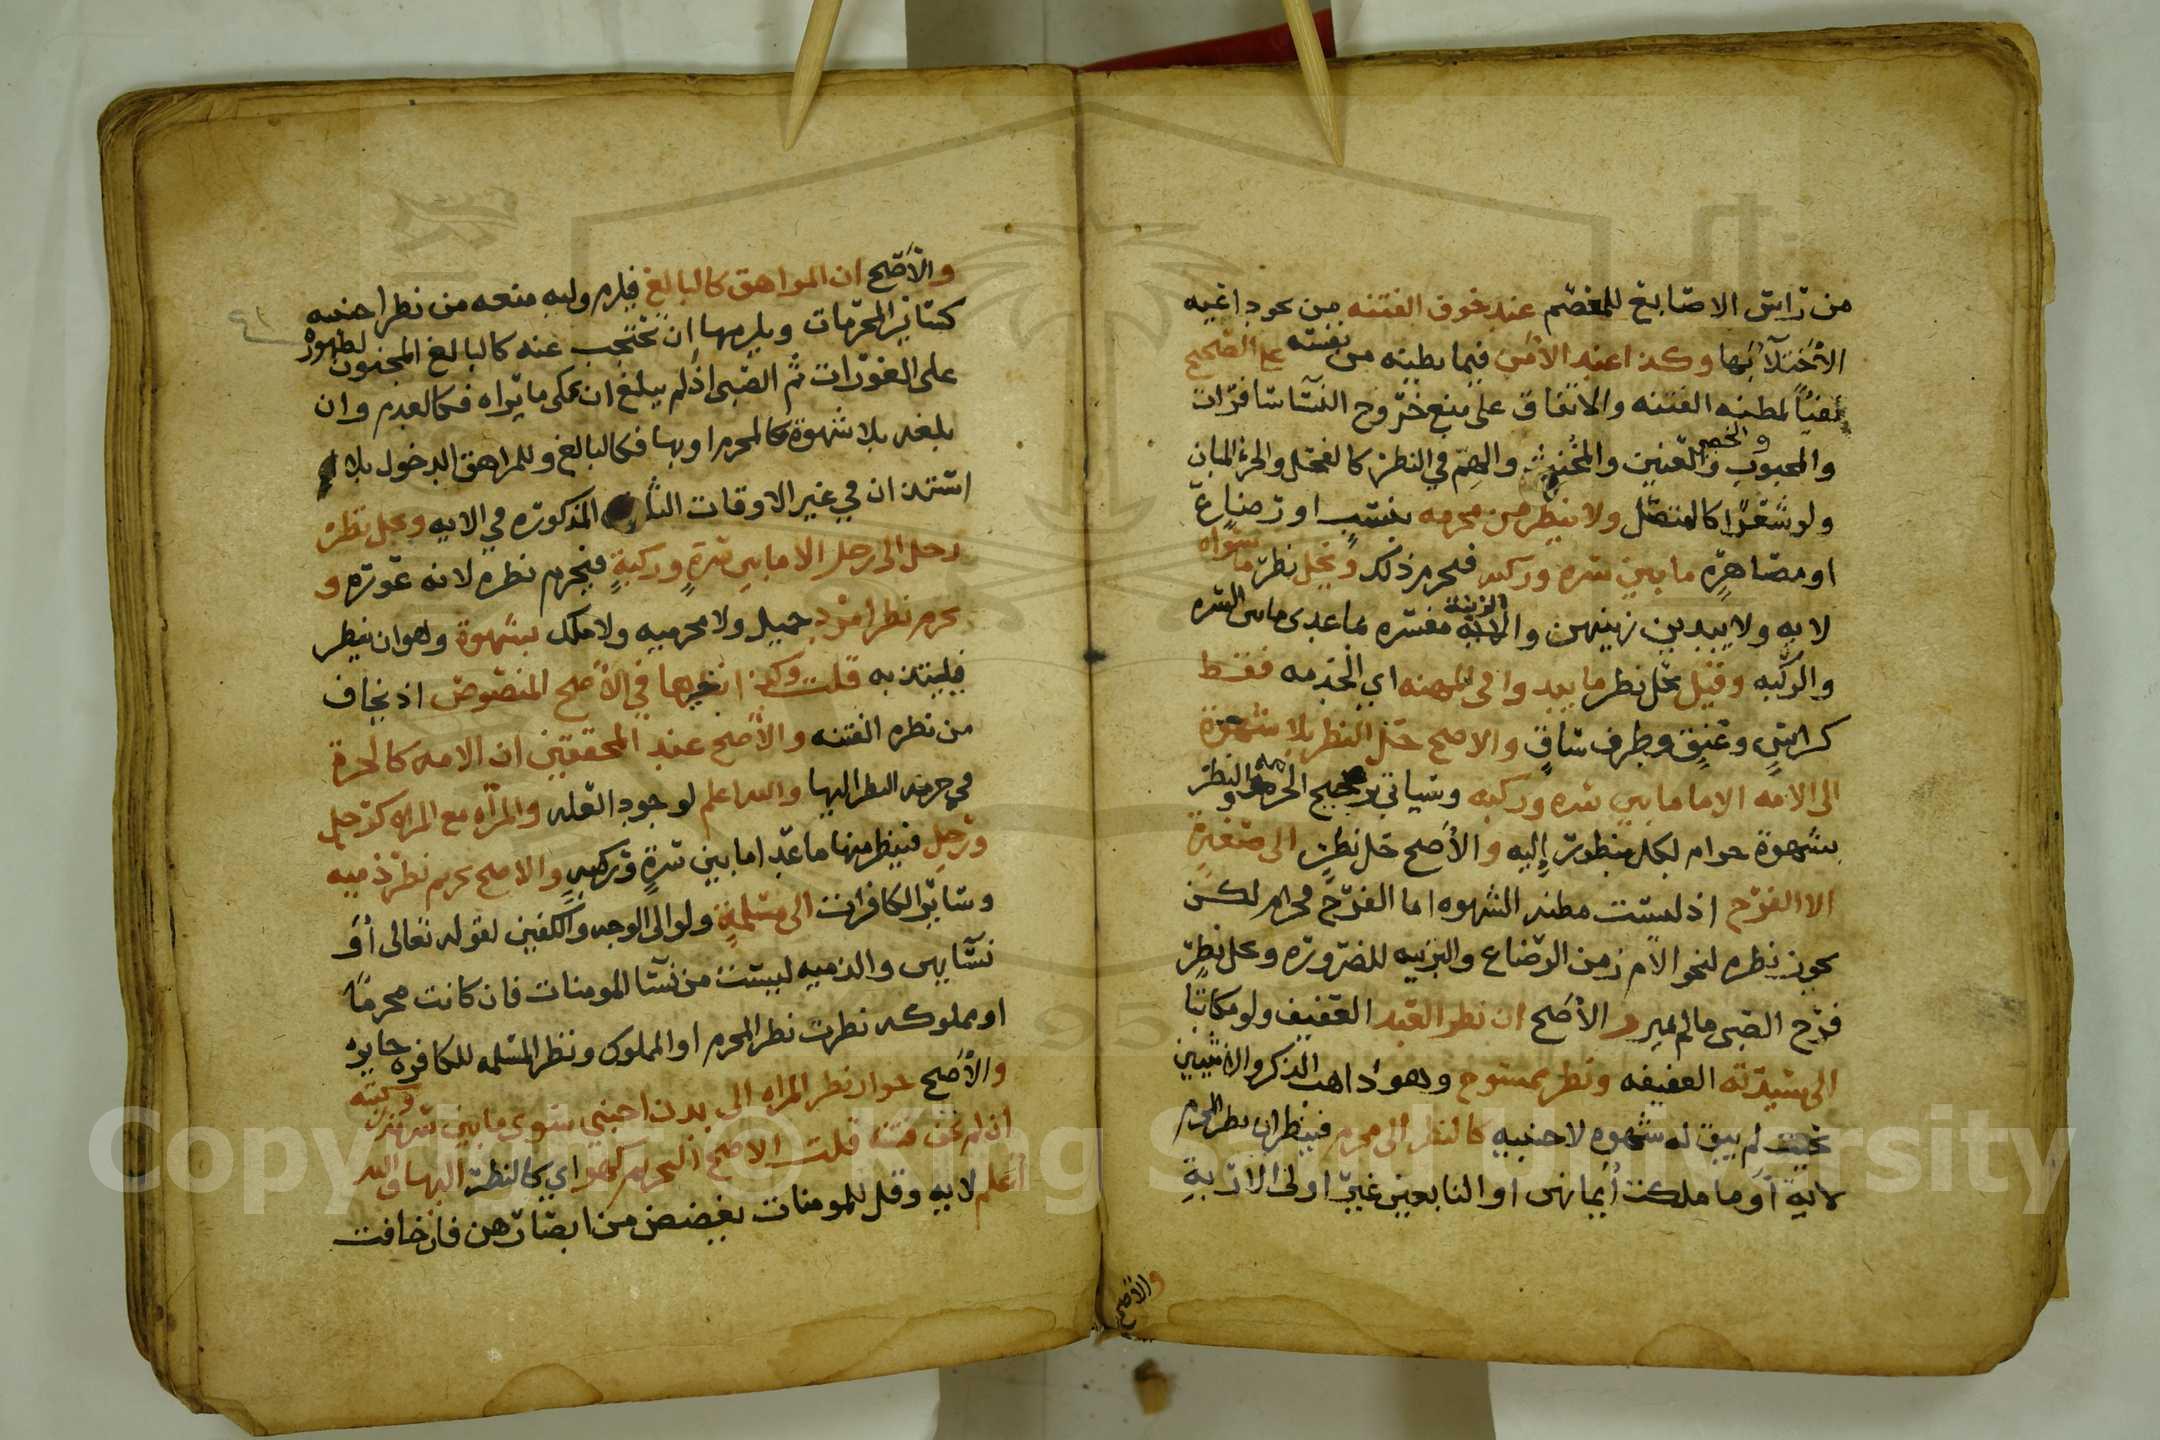 من راس الاصابع للمعصم عند خوف الفتنه من نحو داعيه
الاختلا بها وكذا عند الامن فيما يظنه من نفسه على الصحيح
لمظنه الفتنه والاتفاق على منع خروج النسا سافرات
والمجبوب والخصي والعنين والمخنث والهم في النظر كالفحل والجزء المبان
ولو شعرًا كالمتصل ولا ينظر من محرمه بنسب او رضاع
او مصاهرة ما بين سره وركبه فيحرم ذلك ويحل نظر ما سواه
لايه ولا يبدين زينتهن والزينة مفسره بما عدى ما بين السره
والركبه وقيل يحل نظر ما يبدوا في المهنه اي الخدمه فقط
كراس وعنق وطرف ساق والاصح حل النظر بلا شهوة
الى الامه الا ما بين سره وركبه وسياتي ترجيح الحرمه والنظر
بشهوة حرام لكل منظور إليه والأصح حل نظر الى صغيرة
الا الفرج اذ ليست مظنه الشهوه اما الفرج فحرام لكن
يجوز نظره لنحو الام زمن الرضاع والتربيه للضروره ويحل نظر
فرج الصبي ما لم يميز والأصح ان نظر العبد العفيف ولو مكاتبا
الى سيدته العفيفه ونظر ممسوح وهو ذاهب الذكر والانثيين
بحيث لم يبق له شهوه لاجنبيه كالنظر الى محرم فينظران نظر المحرم
لاية أو ما ملكت أيمانهن او التابعين غير اولي الاربة
والاصح
والأصح ان المراهق كالبالغ فيلزم وليه منعه من نظر اجنبيه
كسائر المحرمات ويلزمها ان تحتجب عنه كالبالغ المجنون لظهوره
على العورات ثم الصبي اذ لم يبلغ ان يحكى ما يراه فكالعدم وان
بلغه بلا شهوة كالمحرم او بها فكالبالغ وللمراهق الدخول بلا
استئذان في غير الاوقات الثلا المذكوره في الايه ويحل نظر
رجل الى رجل الا ما بين سرة وركبة فيحرم نظره لانه عوره و
يحرم نظر امرد جميل ولا محرميه ولا ملك بشهوة وهو ان ينظر
فيلتذ به قلت وكذا بغيرها في الأصح المنصوص اذ يخاف
من نظره الفتنه والأصح عند المحققين ان الامه كالحرة
في حرمة النظر اليها والله اعلم لوجود العله والمرأه مع المراه كرجل
ورجل فينظر منها ما عدا ما بين سرة وركبة والاصح تحريم نظر ذميه
وسائر الكافرات الى مسلمة ولو الى الوجه والكفين لقوله تعالى أو
نسايهن والذميه ليست من نسا المومنات فان كانت محرمًا
او مملوكه نظرت نظر المحرم او المملوك ونظر المسلمه للكافره جايز
والأصح جواز نظر المراه الى بدن اجنبي سوى ما بين سرته وركبته
ان لم تخف فتنة قلت الاصح التحريم كهو اي كالنظر اليها والله
أعلم لايه وقل للمومنات يغضضن من ابصارهن فان خافت